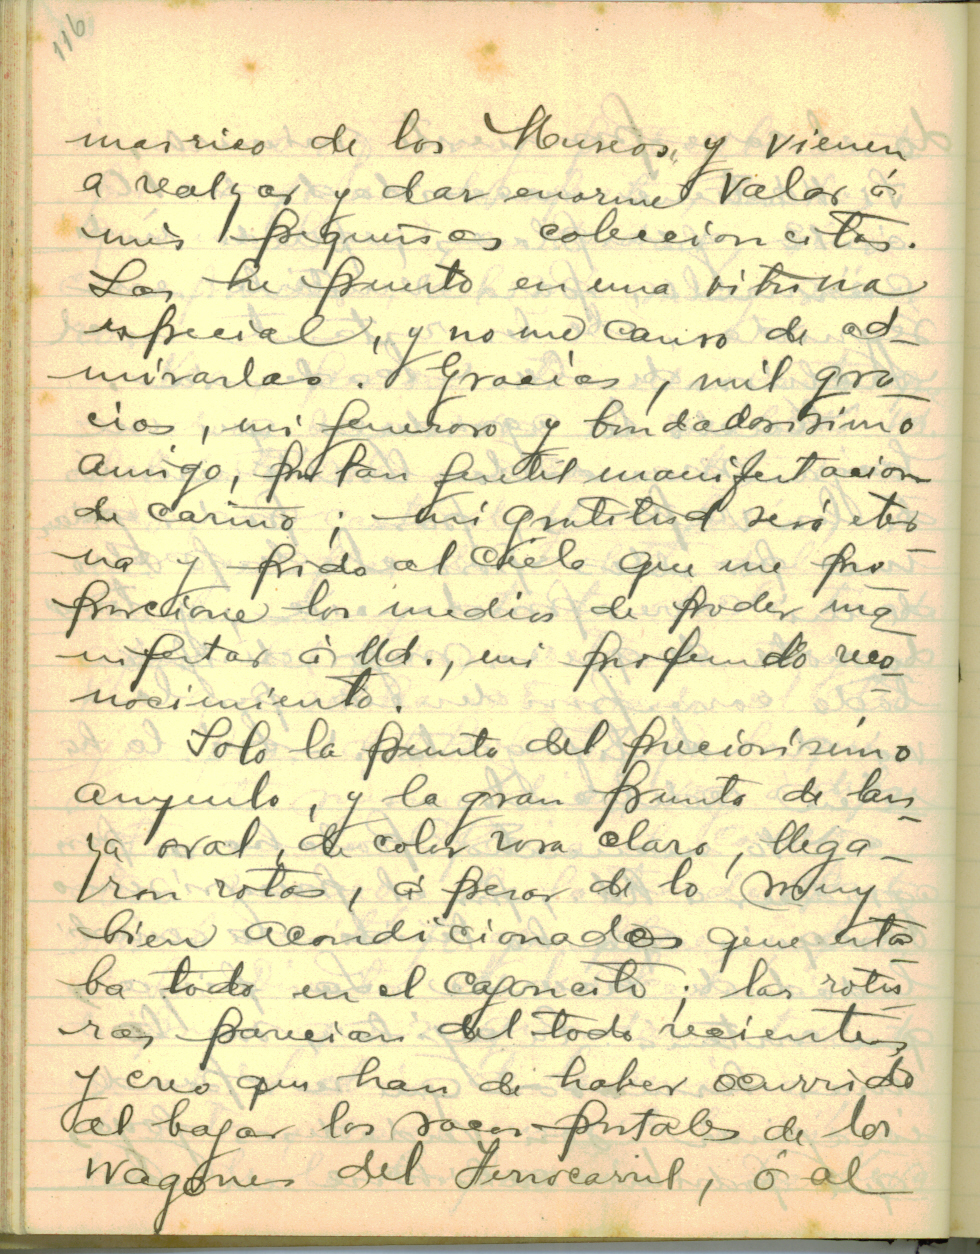 116
marisco de los Museos, y vienen
a realzar y dar enorme valor á
mis pequeñas coleccioncitas.
Las he puesto en una vitrina
especial, y no me canso de ad-
mirarlas. Gracias, mil gra-
cias, mi generoso y bondadosisimo
amigo, por tan gentil manifestacion
de cariño; mi gratitud será eter-
na y pido al cielo que me pro-
porcione los medios de poder ma-
nifestar á Ud., mi profundo reco-
nocimiento.
Solo la punta del preciosisimo
anzuelo, y la gran punta de lan-
za oval, de color rosa claro, llega-
ron rotas, á pesar de lo muy
bien acondicionados que esta-
ba todo en el cajoncito; las rotu-
ras parecian del todo recientes,
y creo que han de haber ocurrido
al bajar los sacos postales de los
Wagones del Ferrocarril, ó al